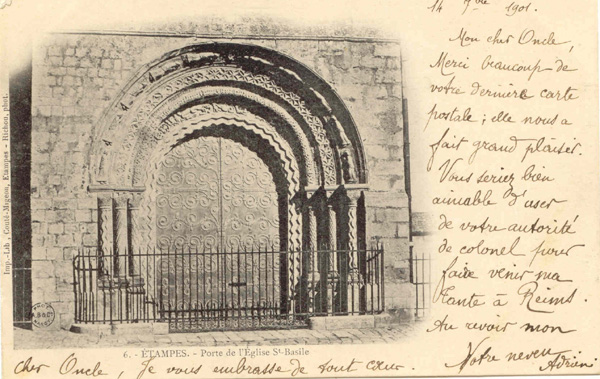 14 7bre 1901.
Mon cher Oncle,
Merci beaucoup de
votre dernière carte
postale ; elle nous a
fait grand plaisir.
Vous seriez bien
aimable d'user
de votre autorité
de colonel pour
faire venir ma
tante à Reims.
Au revoir mon
cher Oncle, Je vous embrasse de tout cœur.
Votre neveu
Adrien
6. - ÉTAMPES. - Porte de l'Église St-Basile
Imp.-Lib. Étampes - Rizhou, phot.